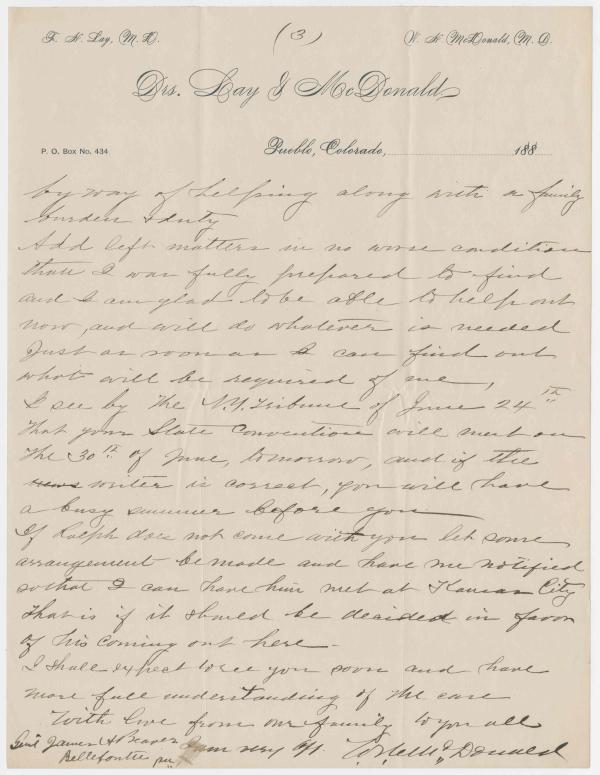 F. H. Lay, M. D.
(3)
W. H. McDonald, M. D.
Drs. Lay & McDonald,
P. O. Box No. 434
Pueblo, Colorado, 188
by way of helping along with a family
burden & duty
Add left matters in no worse condition
than I was fully prepared to find
and I am glad to be able to help out
now, and will do whatever is needed
Just as soon as I can find out
what will be required of me,
I see by the N.Y. Tribune of June 24th
that your State Convention will meet on
the 30th of June, tomorrow, and if the
news writer is correct, you will have
a busy summer before you
If Ralph does not come with you let some
arrangement be made and have me notified
so that I can have him met at Kansas City
that is if it should be decided in favor
of his coming out here —
I shall expect to see you soon and have
more full understanding of the case
With love from our family to you all
Genl James A Beaver I am very
Bellefonte pa
McDonald